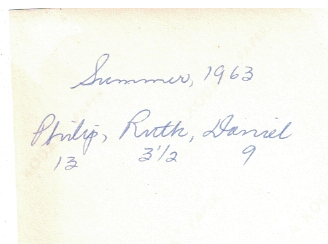 Summer, 1963
Philip, Ruth, Daniel
13 3 1/2 9